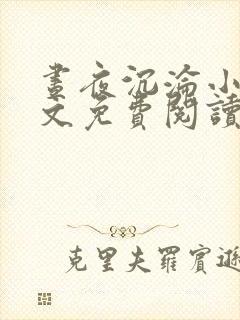 晝夜沉淪小
文免費閱讀
克里夫羅賓遜